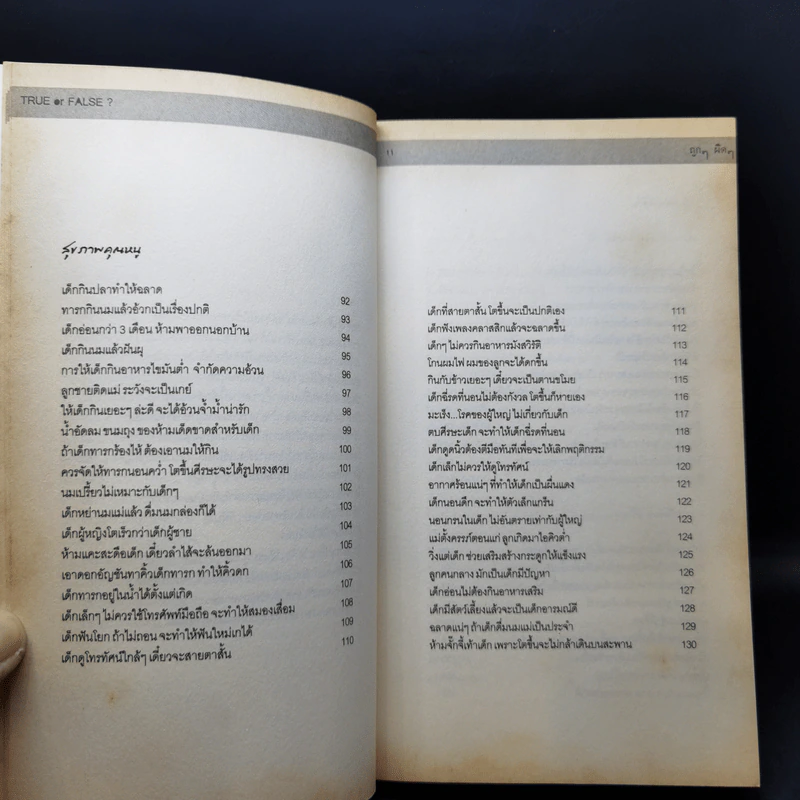 TRUE or FALSE ?
สุขภาพคุณหนู
เด็กกินปลาทำให้ฉลาด 92
ทารกกินนมแล้วอ้วกเป็นเรื่องปกติ 93
เด็กอ่อนกว่า 3 เดือน ห้ามพาออกนอกบ้าน 94
เด็กกินนมแล้วฟันผุ 95
การให้เด็กกินอาหารไขมันต่ำ จำกัดความอ้วน 96
ลูกชายติดแม่ ระวังจะเป็นเกย์ 97
ให้เด็กกินเยอะๆ ล่ะดี จะได้อ้วนจ้ำม่ำน่ารัก 98
น้ำอัดลม ขนมถุง ของห้ามเด็ดขาดสำหรับเด็ก 99
ถ้าเด็กทารกร้องไห้ ต้องเอานมให้กิน 100
ควรจัดให้ทารกนอนคว่ำ โตขึ้นศีรษะจะได้รูปทรงสวย 101
นมเปรี้ยวไม่เหมาะกับเด็กๆ 102
เด็กหย่านมแม่แล้ว ดื่มนมกล่องก็ได้ 103
เด็กผู้หญิงโตเร็วกว่าเด็กผู้ชาย 104
ห้ามแคะสะดือเด็ก เดี๋ยวลำไส้จะล้นออกมา 105
เอาดอกอัญชันทาคิ้วเด็กทารก ทำให้คิ้วดก 106
เด็กทารกอยู่ในน้ำได้ตั้งแต่เกิด 107
เด็กเล็กๆ ไม่ควรใช้โทรศัพท์มือถือ จะทำให้สมองเสื่อม 108
เด็กฟันโยก ถ้าไม่ถอน จะทำให้ฟันใหม่เกได้ 109
เด็กดูโทรทัศน์ใกล้ๆ เดี๋ยวจะสายตาสั้น 110
11 ถูกๆ ผิดๆ
เด็กที่สายตาสั้น โตขึ้นจะเป็นปกติเอง 111
เด็กฟังเพลงคลาสสิกแล้วจะฉลาดขึ้น 112
เด็กๆ ไม่ควรกินอาหารมังสวิรัติ 113
โกนผมไฟ ผมของลูกจะได้ดกขึ้น 114
กินกับข้าวเยอะๆ เดี๋ยวจะเป็นตานขโมย 115
เด็กฉี่รดที่นอนไม่ต้องกังวล โตขึ้นก็หายเอง 116
มะเร็ง...โรคของผู้ใหญ่ ไม่เกี่ยวกับเด็ก 117
ตบศีรษะเด็ก จะทำให้เด็กฉี่รดที่นอน 118
เด็กดูดนิ้วต้องตีมือทันทีเพื่อจะให้เลิกพฤติกรรม 119
เด็กเล็กไม่ควรให้ดูโทรทัศน์ 120
อากาศร้อนแน่ๆ ที่ทำให้เด็กเป็นผื่นแดง 121
เด็กนอนดึก จะทำให้ตัวเล็กแกร็น 122
นอนกรนในเด็ก ไม่อันตรายเท่ากับผู้ใหญ่ 123
แม่ตั้งครรภ์ตอนแก่ ลูกเกิดมาไอคิวต่ำ 124
วิ่งแต่เด็ก ช่วยเสริมสร้างกระดูกให้แข็งแรง 125
ลูกคนกลาง มักเป็นเด็กมีปัญหา 126
เด็กอ่อนไม่ต้องกินอาหารเสริม 127
เด็กมีสัตว์เลี้ยงแล้วจะเป็นเด็กอารมณ์ดี 128
ฉลาดแน่ๆ ถ้าเด็กดื่มนมแม่เป็นประจำ 129
ห้ามจั๊กจี้เท้าเด็ก เพราะโตขึ้นจะไม่กล้าเดินบนสะพาน 130